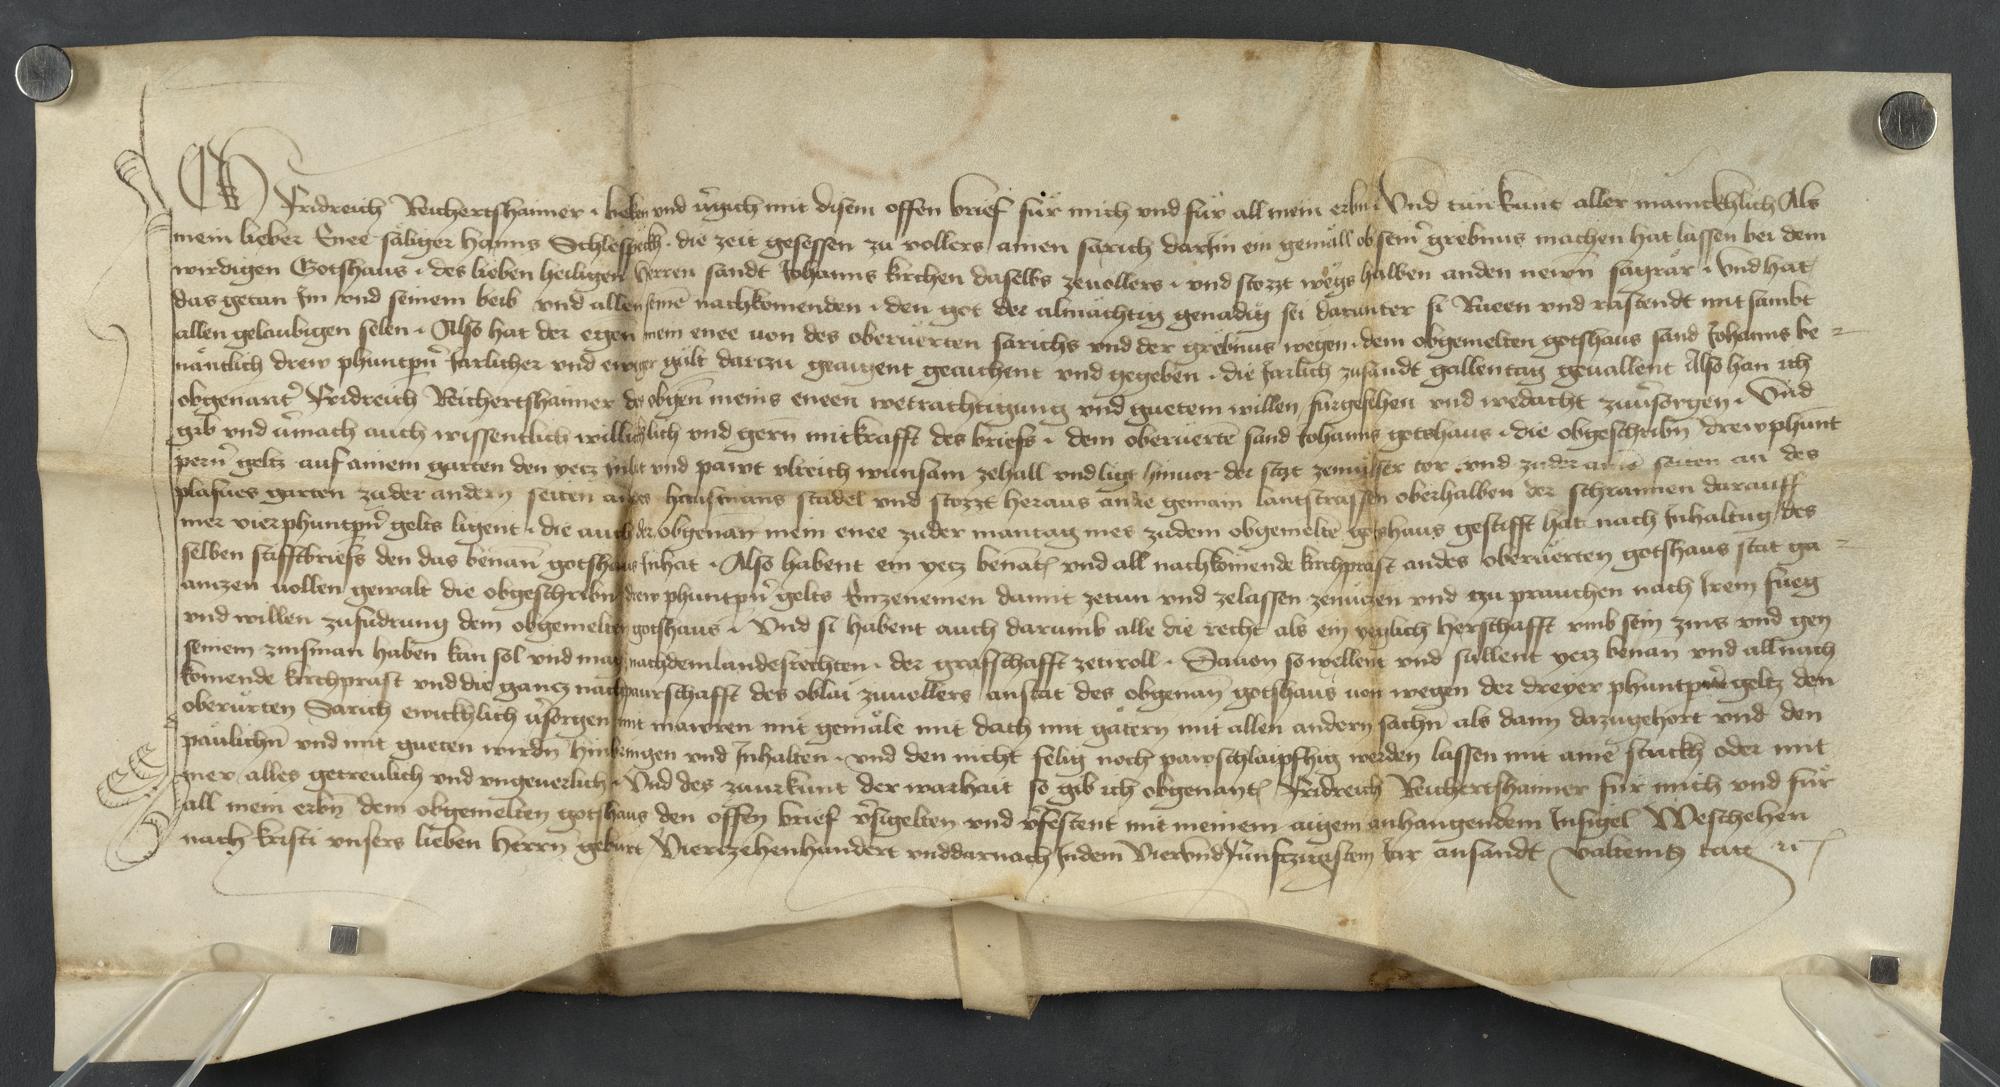 Ich Fridreich Reichertshaimer · beken und v̓gich mit disem offen brief für mich vnd für all mein erbn · Vnd tun kunt aller manickhlich Als
mein lieber Enee säliger Hanns Schlesspeckh · die zeit gesessen zu vollers ainen sarich darJn ein gemäll ob sein̓ grebnus machen hat lassen bei dem
wirdigen Gotshaus · des lieben heiligen herren sandt Johanns kirchen daselbs zeuollers · vnd stozzt wegs halben anden newn̄ sagrär · Vnd hat
das getan Jm vnd seinem beib vnd allen seinē nachkomenden · den got der almächtig genadig sei darunter si Rueen vnd rastendt mit sambt
allen gelaubigen selen · Also hat der egen mein enee von des oberuerten sarichs vnd der grebnus wegen · dem obgemelten gotshaus sand Johanns be=
näntlich drew phuntpn̓ Jarlicher vnd ewiger gült darczu geaigent geaichent vnd gegeben · die Jarlich zusandt gallentag geuallent Also han ich
obgenant̓ Fridreich Reichertshaimer des obgen̄ meins eneen wetrachtigung vnd guetem willen fürgesehen vnd wedacht zuv̓sorgen · Vnd
gib vnd v̓mach auch wissentlich willichlich vnd gern mitkrafft des briefs · dem oberuertē sand Johanns gotshaus · die obgeschribn̄ drewphunt
pern̓ geltz auf ainem garten den yecz Jnhat vnd pawt vlreich wunsam zehall vnd ligt hinuor der stat zemilser tor vnd zu der ainē seiten an des
plafues garten zuder andern seiten an des hausmans stadel vnd stozzt heraus an die gemain lantstrassen oberhalben der schrannen darauff
mer vierphuntpn̓ gelts ligent · die auch der obgenan̄ mein enee zuder mantag mes zudem obgemeltē gotshaus gestifft hat nach Jnhaltug des
selben stifftbriefs den das benan̄ gotshaus Jnhat · Also habent ein yecz benāt vnd all nachkomende kirchpräst andes oberuerten gotshaus stat ga=
anczen vollen gewalt die obgeschribn̄ drew phuntpn̓ gelts Einzenemen damit zetun vnd zelassen zenüczen vnd tzu prauchen nach Jrem fueg
vnd willen zufudrung dem obgemelten gotshaus · Vnd si habent auch darumb alle die recht als ein yeglich herschafft vmb sein zins vnd gen
seinem zinsman haben kan sol vnd mag nachdemlandesrechten · der grafschafft zetiroll · Dauon so wellent vnd sullent yecz benan̄ vnd all nach
komende kirchpräst vnd die gancz nachpaurschafft des oblai zuuellers anstat des obgenan̄ gotshaus von wegen der dreyer phuntpn̓ geltz den
oberürten Sarich ewickhlich v̓sorgen mit mawren mit gemäle mit dach mit gätern mit allen andern sachn̄ als dann dazugehort vnd den
päulichn̄ vnd mit gueten wirdn̄ hinbringen vnd Jnhalten · vnd den nicht felig noch pawschlaipfhig werden lassen mit ainē stuckh oder mit
mer alles getreulich vnd vngeuerlich · Vnd des zuurkunt der warhait so gib ich obgenant Fridreich Reichertshaimer für mich vnd für
all mein erbn̄ dem obgemelten gotshaus den offen brief v̓sigelten vnd v̓festent mit meinem aigem anhangendem Jnsigel Weschehen
nach kristi vnsers lieben herrn̄ geburt Viertzehenhundert vnddarnach Jndem VierundFünfczigistem Jar ansandt valteins tag